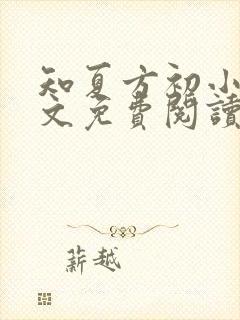 知夏方初小
文免費閱讀
薪越